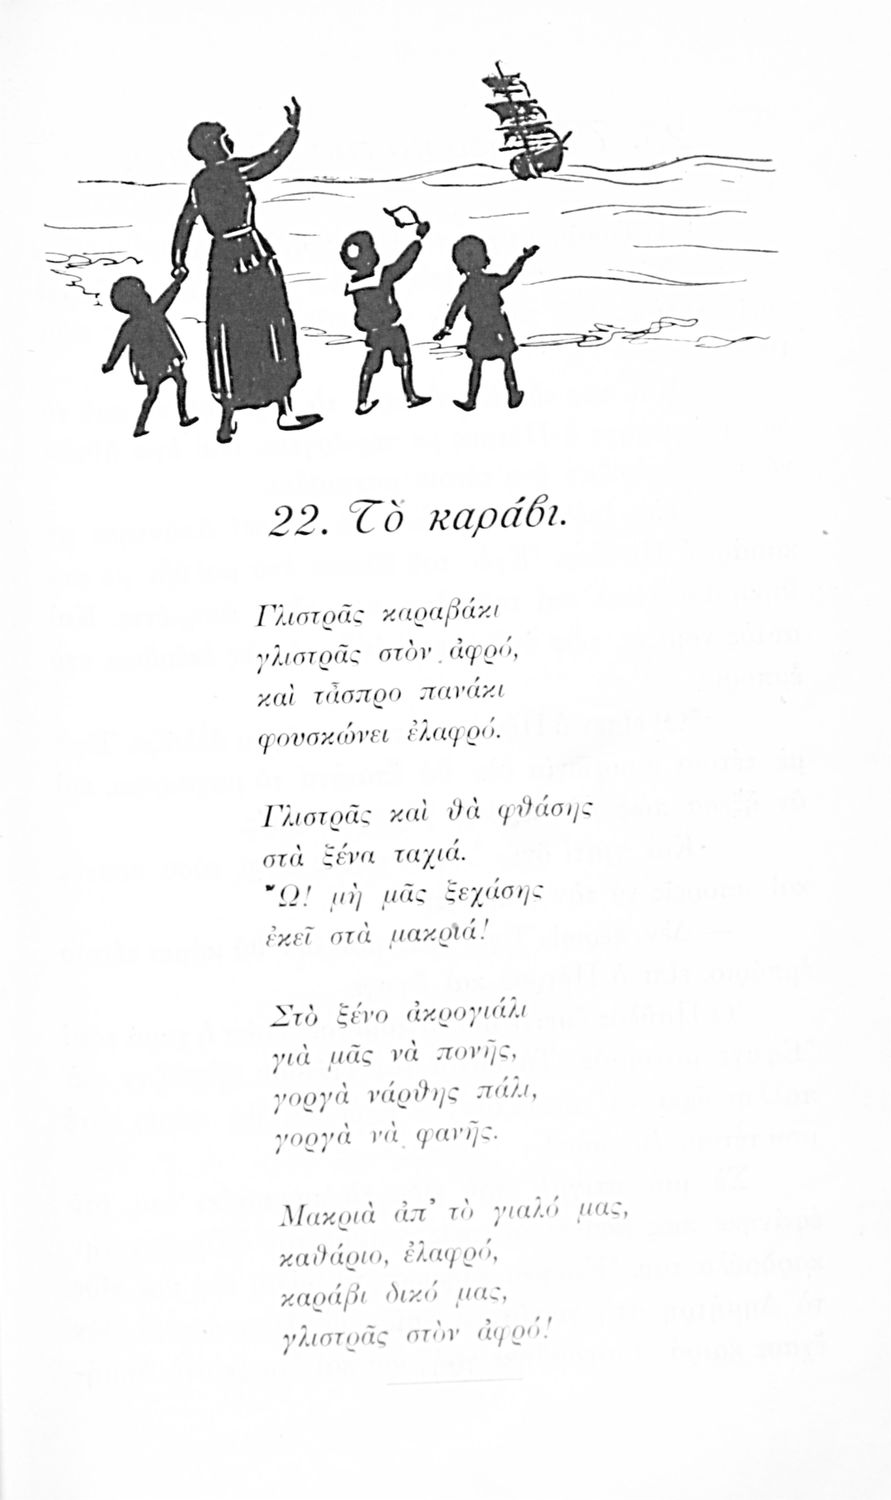 22. Τὸ καράβι.
Γλιστρᾶς καραβάκι
γλιστρᾶς στὸν ἀφρό,
καὶ τἆσπρο πανάκι
φουσκώνει ἐλαφρό.
Γλιστρᾶς καὶ θὰ φθάσης
στὰ ξένα ταχιά.
Ὤ! μὴ μᾶς ξεχάσης
ἐκεῖ στὰ μακριά!
Στὸ ξένο ἀκρογιάλι
γιὰ μᾶς νὰ πονῆς,
γοργὰ νάρθης πάλι,
γοργὰ νὰ φανῆς.
Μακριὰ ἀπ' τὸ γιαλό μας,
καθάριο, ἐλαφρό,
καράβι δικό μας,
γλιστρᾶς στὸν ἀφρό!